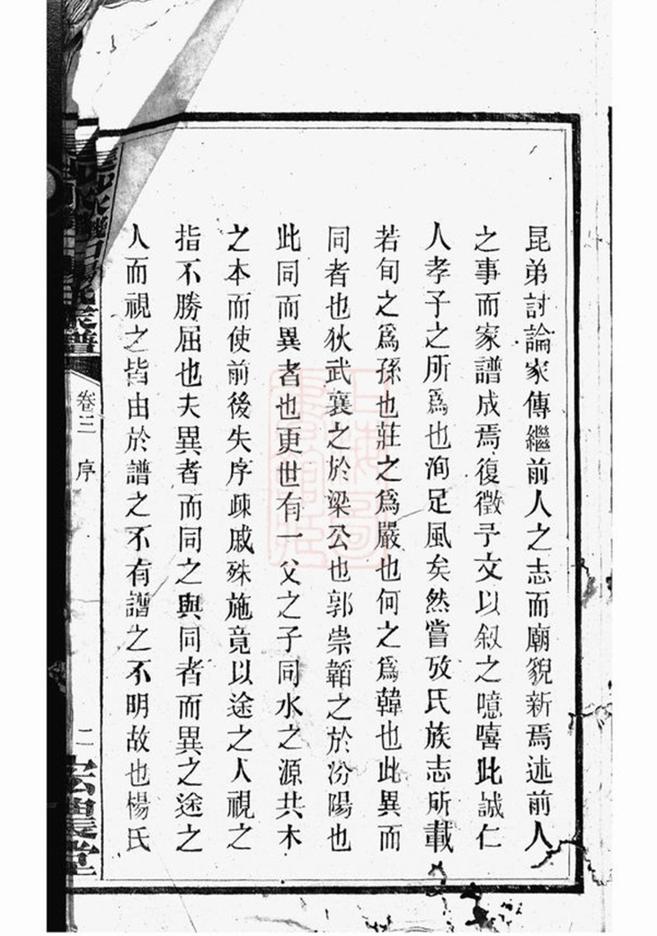 昆弟討論家傳繼前人之志而廟貌新焉述前人
之事而家譜成焉復徵予文以叙之噫嘻此誠仁
人孝子之所爲也洵足風矣然嘗攷氏族志所載
若荀之爲孫也莊之爲嚴也何之爲韓也此異而
同者也狄武襄之於梁公也郭崇韜之於汾陽也
此同而異者也更世有一父之子同水之源共木
之本而使前後失序疎戚殊施竟以途之人視之
指不勝屈也夫異者而同之與同者而異之途之
人而視之皆由於譜之不有譜之不明故也楊氏
宗譜
卷三 序
二